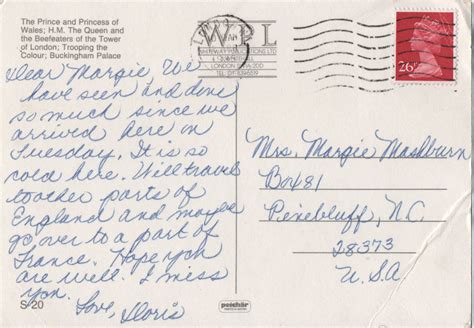 The Prince and Princess of
Wales; H.M. The Queen and
the Beefeaters of the Tower
of London; Trooping the
Colour; Buckingham Palace
WPL
WHITEWAY PUBLICATIONS LTD
LONDON
26P
Dear Margie, We
have seen and done
so much since we
arrived here in
Tuesday. It is so
cold here. Will travel
to other parts of
England and maybe
go over to a part of
France. Hope you
are well. I miss
you.
Love, Doris
Mrs. Margie Mashburn
Box 481
Pinebluff, N.C.
28373
U.S.A
S 20